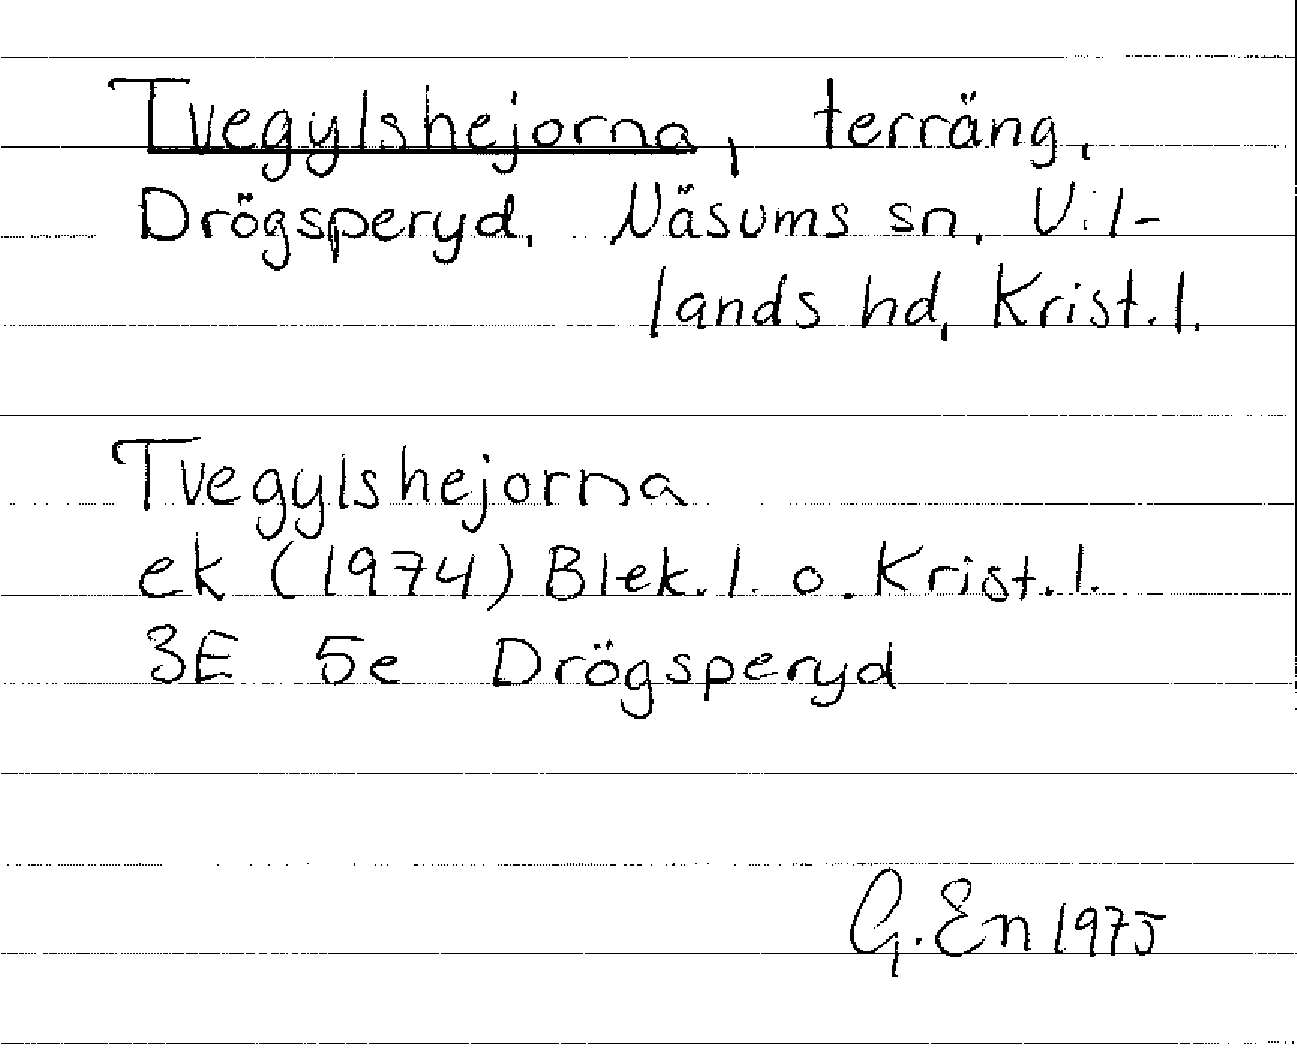 Tvegylshejorna, terräng,
Drögsperyd, Näsums sn, Vil-
lands hd, Krist.l.
Tvegylshejorna
ek (1974) Blek.l. o. Krist.l.
3E 5e Drögsperyd
G. En 1975